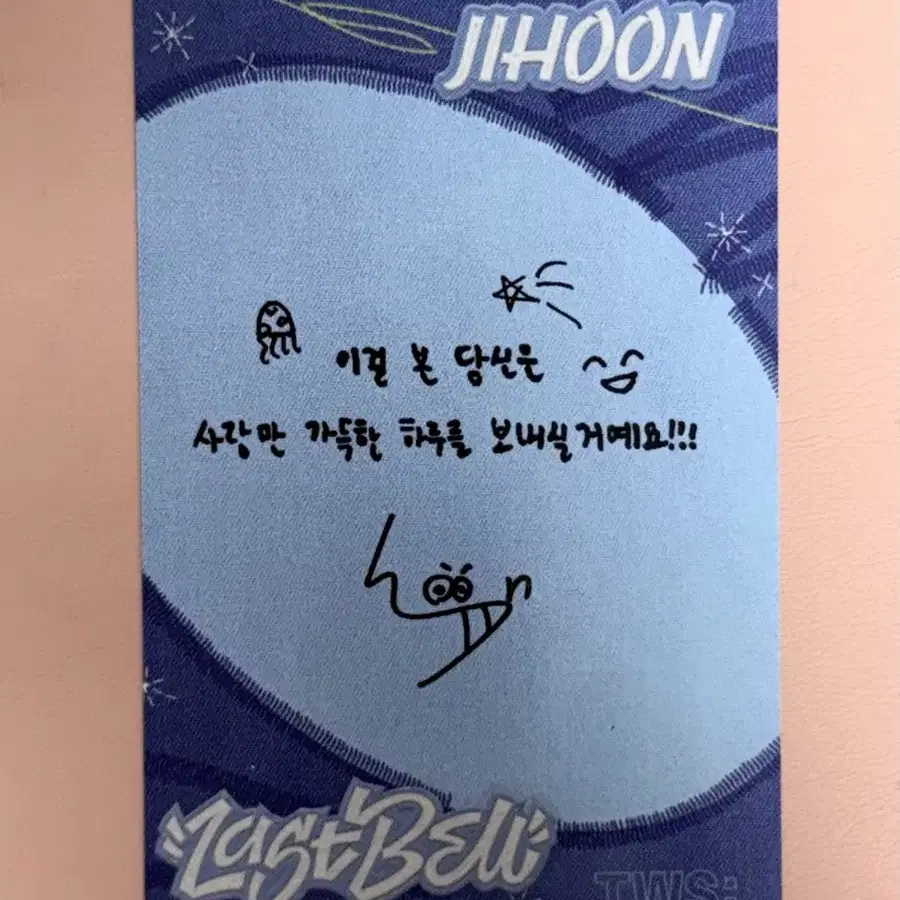 JIHOON
이걸 본 당신은
사랑만 가득한 하루를 보내실거예요!!!
Last Bell
TWS: